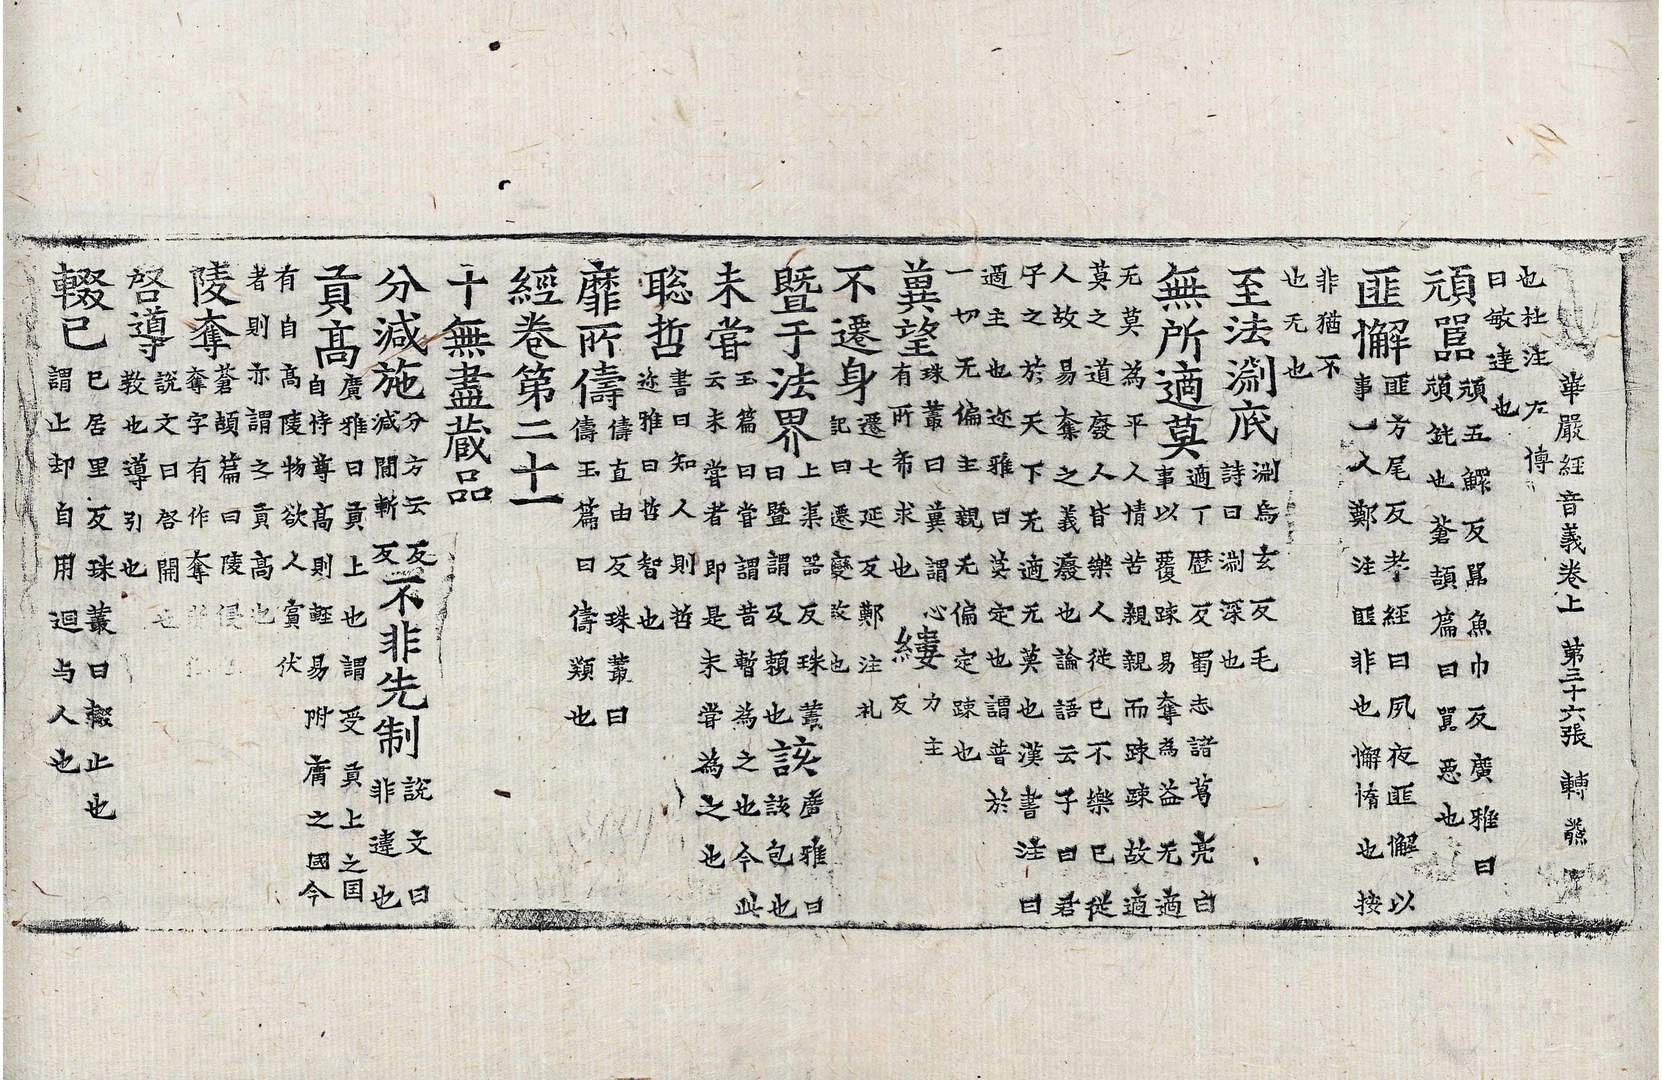 華嚴經音義卷上 第三十六張 轉 燕
也杜注左傳
曰敏達也
頑嚚 頑五鰥反嚚魚巾反廣雅曰
頑鈍也蒼頡篇曰嚚惡也
匪懈 匪方尾反孝經曰夙夜匪懈以
事一人鄭注匪非也懈惰也按
非猶不
也无也
至法淵底 淵烏玄反毛
詩曰淵深也
無所適莫 適丁歷反蜀志諸葛亮曰
事以覆疎易奪為益无適
无莫為平人情苦親親而疎疎故適
莫之道廢人皆樂人從已不樂已從
人故易奪之義癈也論語云子曰君
子之於天下无適无莫也漢書注曰
適主也迩雅曰莫定也謂普於
一切无偏主親无偏定疎也
冀望 珠叢曰冀謂心
有所希求也
縷 力主
反
不遷身 遷七延反鄭注礼
記曰遷變改也
暨于法界 上渠器反珠叢
曰暨謂及頼也
該 廣雅曰
該包也
未甞 玉篇曰甞謂昔暫為之也今此
云未甞者即是未甞為之也
聡哲 書曰知人則哲
迩雅曰哲智也
靡所儔 儔直由反珠叢曰
儔玉篇曰儔類也
經卷第二十一
十無盡藏品
分減施 分方云反
減閒斬反
不非先制 說文曰
非違也
貢高 廣雅曰貢上也謂受貢上之国
自恃尊高則輕易附庸之國今
有自高陵物欲人賓伏
者則亦謂之貢高也
陵奪 蒼頡篇曰陵侵
奪字有作奪
啓導 說文曰啓開也
教也導引也
輟已 已居里反珠叢曰輟止也
謂止却自用迴与人也